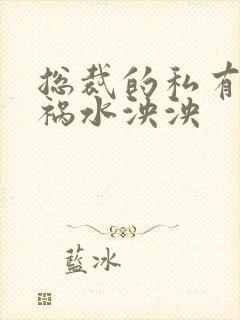 总裁的私有
祸水泱泱
藍冰